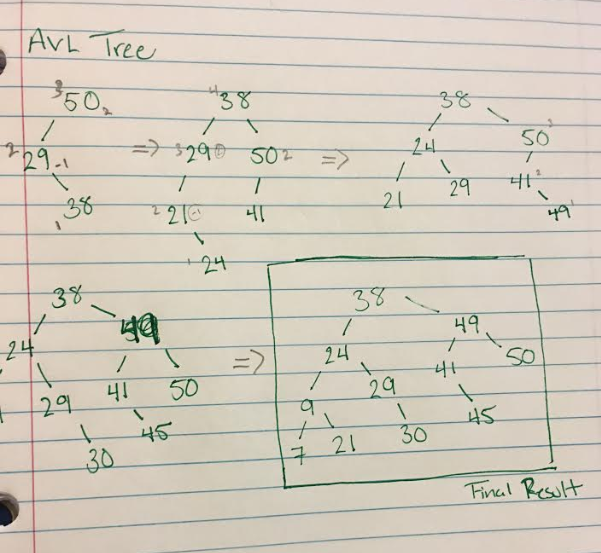 AVL Tree
3 50 2
2 29 -1
1 38
=>
4 38
3 29 50 2
2 21 -1 41
1 24
=>
38
24 50 3
21 29 41 2
49 1
38
24 49
29 41 50
30 45
=>
38
24 49
9 29 41 50
7 21 30 45
Final Result